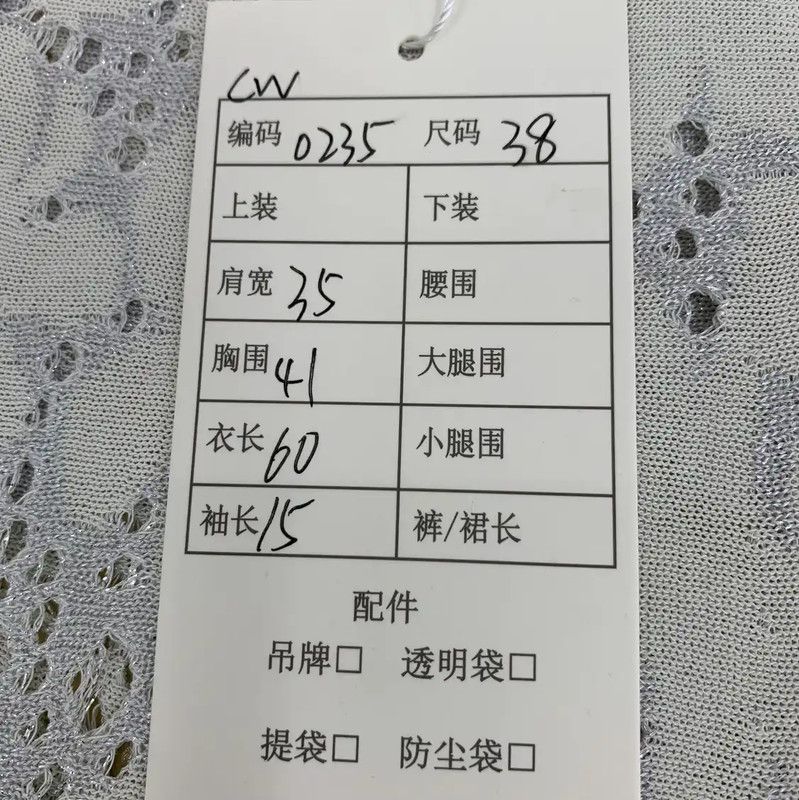 CW
编码 0235 尺码 38
上装 下装
肩宽 35 腰围
胸围 41 大腿围
衣长 60 小腿围
袖长 15 裤/裙长
配件
吊牌□ 透明袋□
提袋□ 防尘袋□